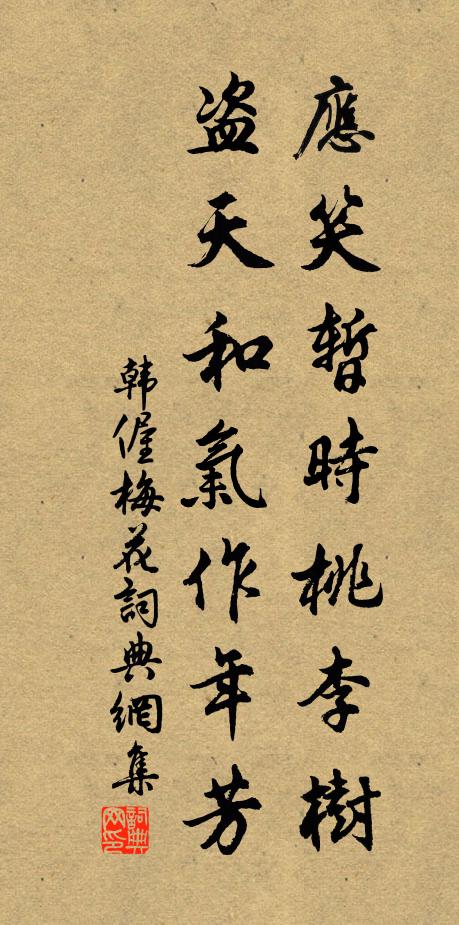 應笑暫時桃李樹
盗天和氣作年芳
韩偓梅花詞典網集
詞典网印